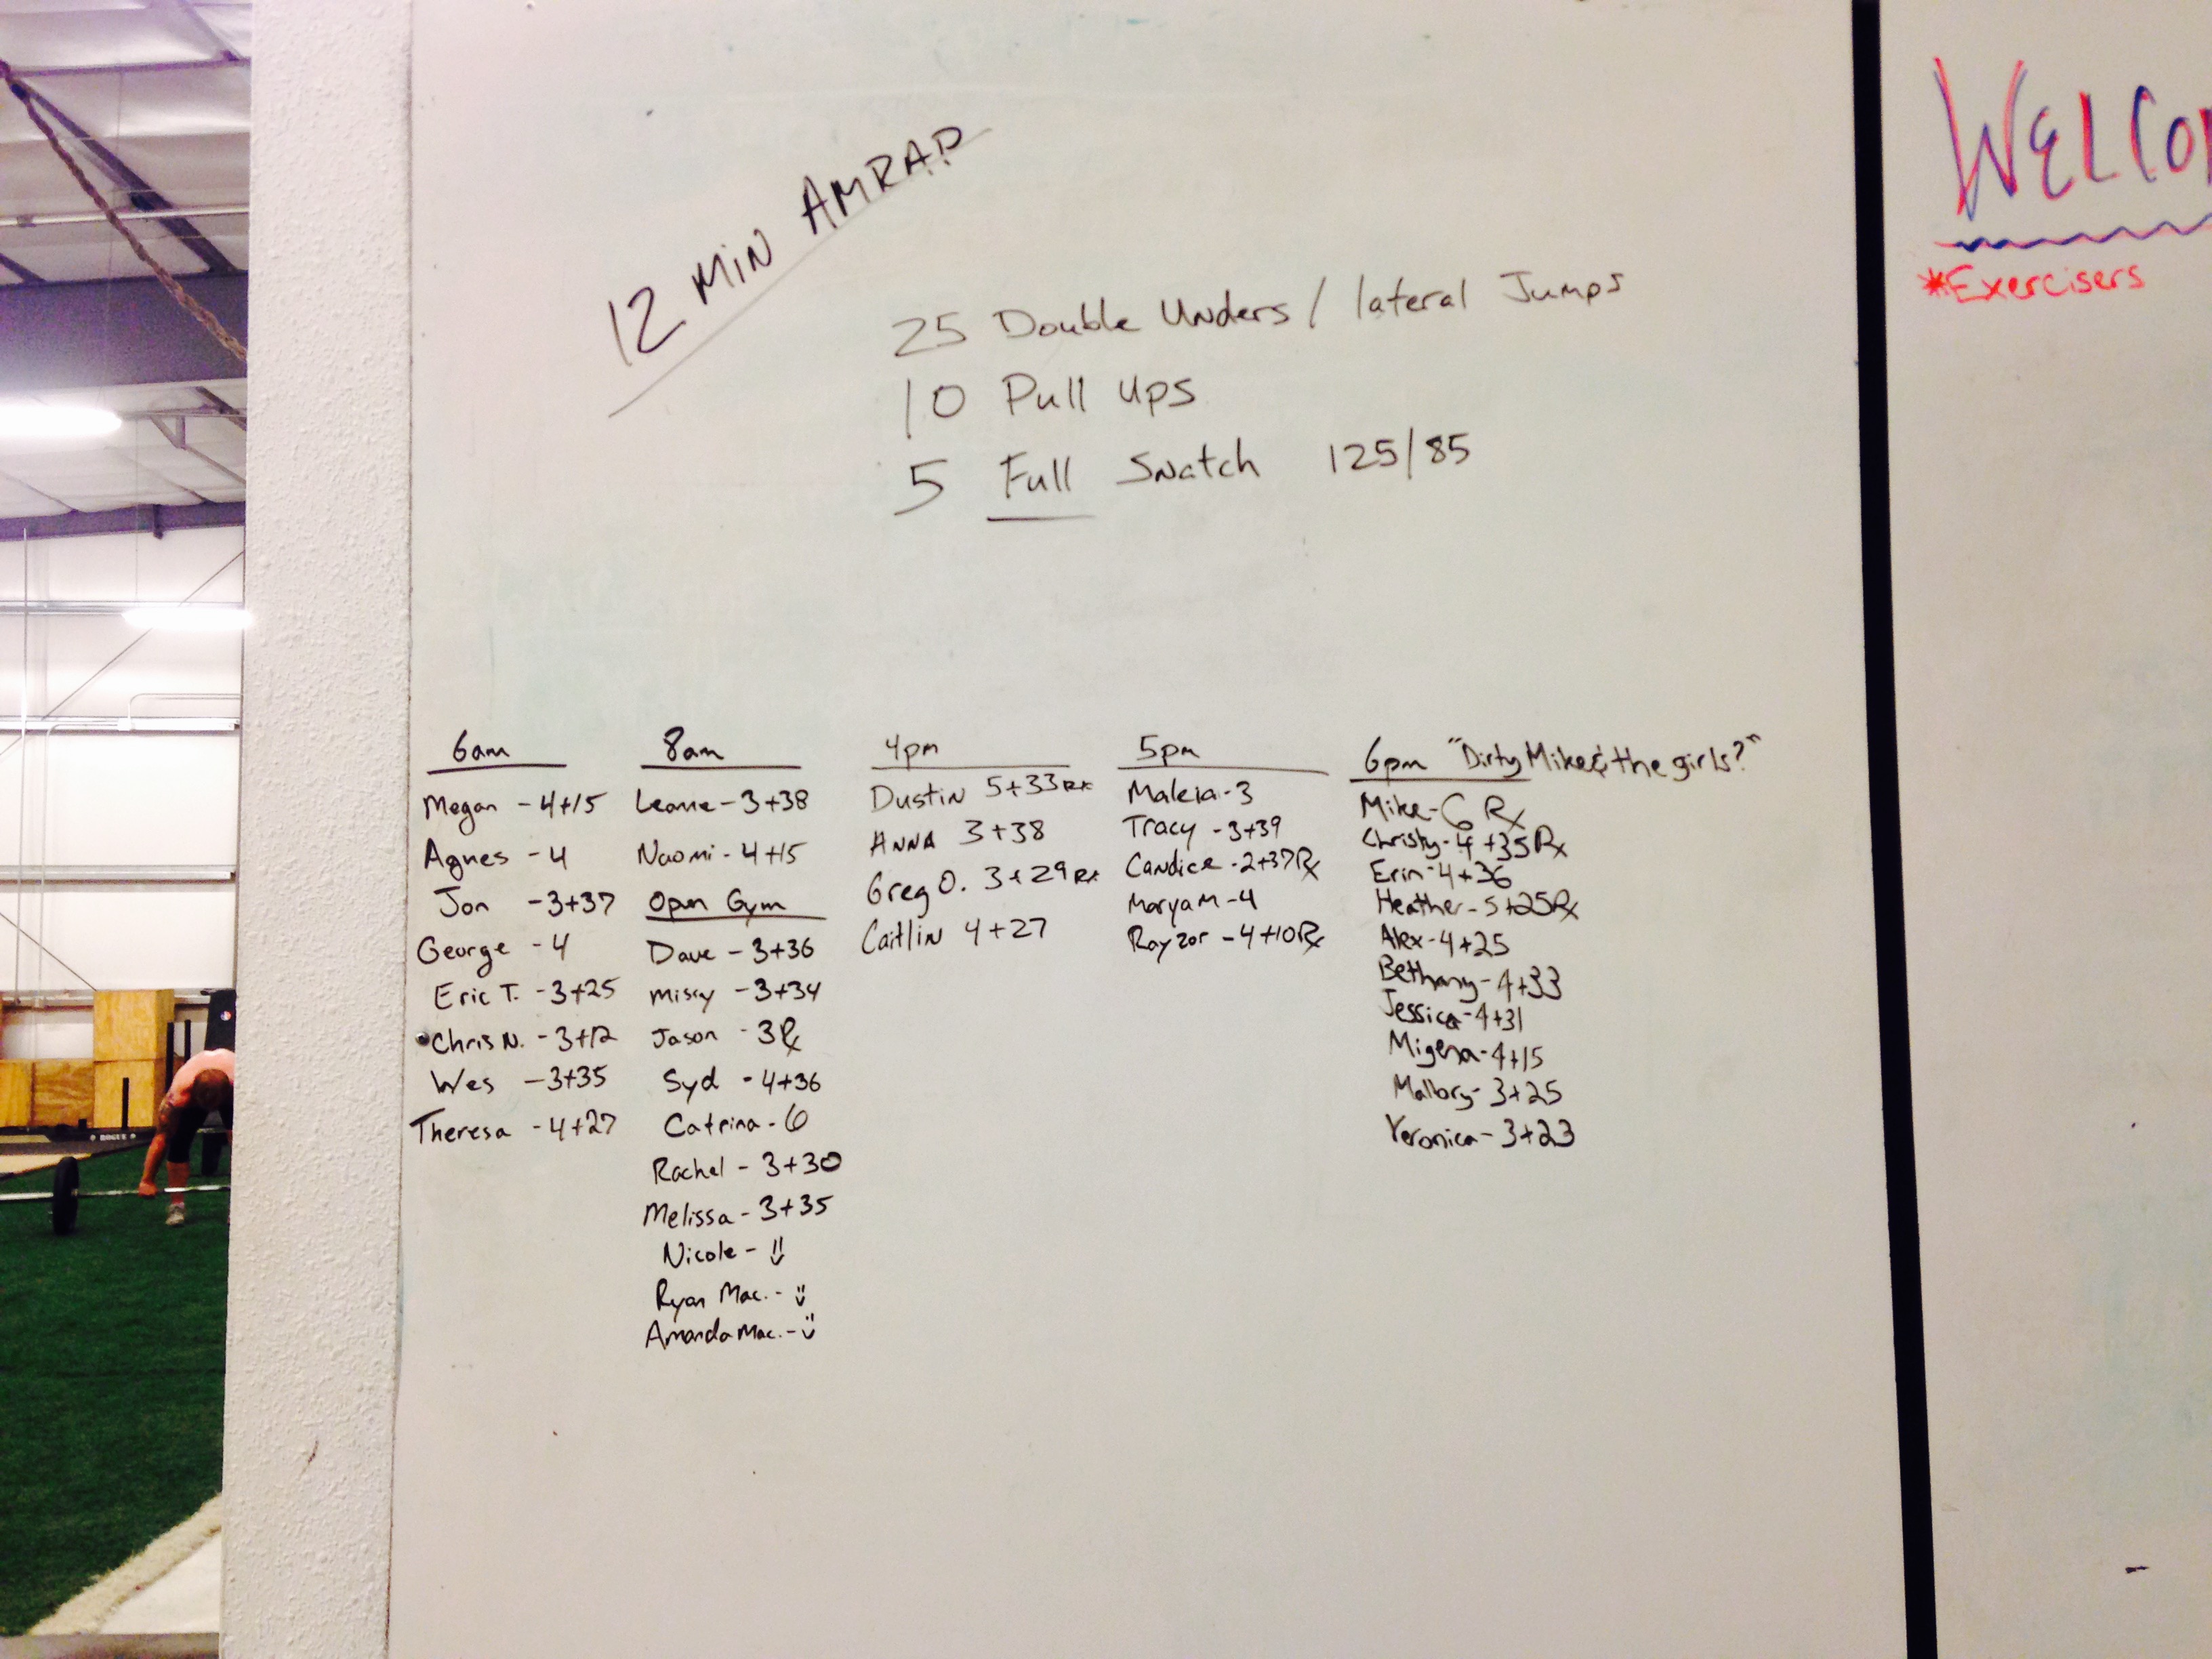 12 MIN AMRAP
25 Double Unders / lateral Jumps
10 Pull ups
5 Full Snatch 125/85
6am
Megan - 4+15
Agnes - 4
Jon - 3+37
George - 4
Eric T. - 3+25
Chris N. - 3+12
Wes - 3+35
Theresa - 4+27
8am
Leanne - 3+38
Naomi - 4+15
Open Gym
Dave - 3+36
Missy - 3+34
Jason - 3 Rx
Syd - 4+36
Catrina - 6
Rachel - 3+30
Melissa - 3+35
Nicole - !!
Ryan Mac. - :)
Amanda Mac. - :)
4pm
Dustin 5+33 Rx
ANNA 3+38
Greg O. 3+29 Rx
Caitlin 4+27
5pm
Maleia - 3
Tracy - 3+39
Candice - 2+37 Rx
Maryam - 4
Rayzor - 4+10 Rx
6pm "Dirty Mike & the girls?"
Mike - 6 Rx
Christy - 4+35 Rx
Erin - 4+36
Heather - 5+25 Rx
Alex - 4+25
Bethany - 4+33
Jessica - 4+31
Migena - 4+15
Mallory - 3+25
Veronica - 3+23
WELCO
*Exercisers
ROGUE